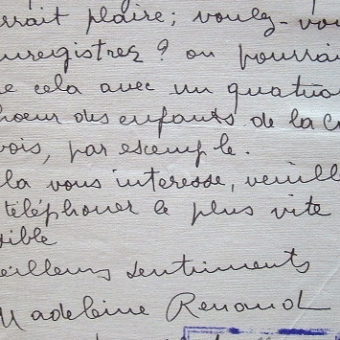 rrait plaire; voulez-vou
nregistrez? on pourrai
e cela avec un quatuo
hoeur des enfants de la C
vois, par exemple.
la vous interesse, veuill
téléphoner le plus vite
sible
eilleurs sentiments
Madeleine Renaud